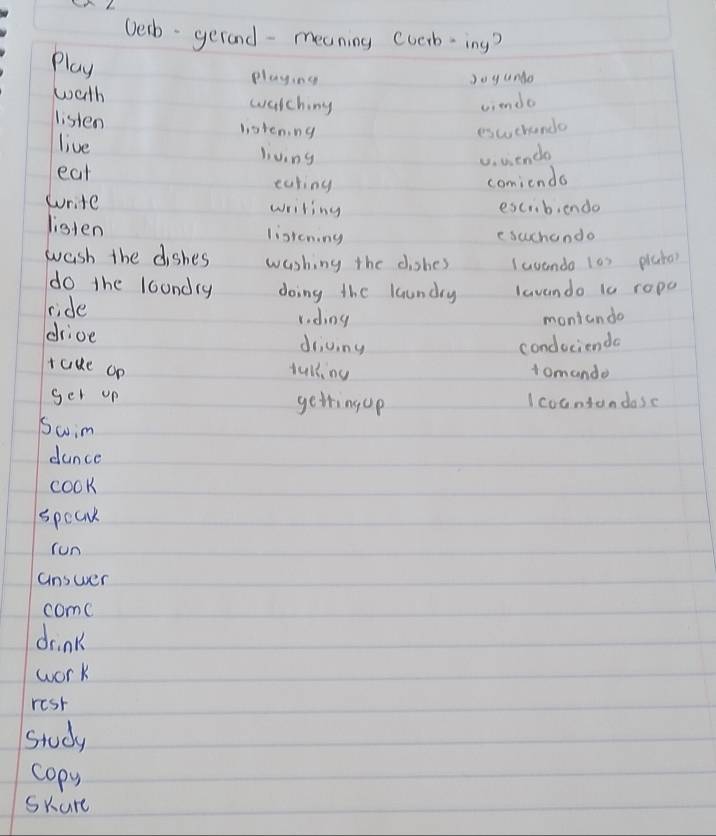 Verb - gerand - meaning (verb - ing)
Play playing Juyundo
wacth watching viendo
listen listening escuchando
live living viviendo
eat eating comiendo
write writing escribiendo
listen listening escuchando
wash the dishes washing the dishes lavando los platos
do the loondry doing the laundry lavando la ropa
ride riding montando
drive driving conduciendo
take up taking tomando
get up getting up lcountandose
Swim
dance
cook
speak
run
answer
come
drink
work
rest
study
copy
skate